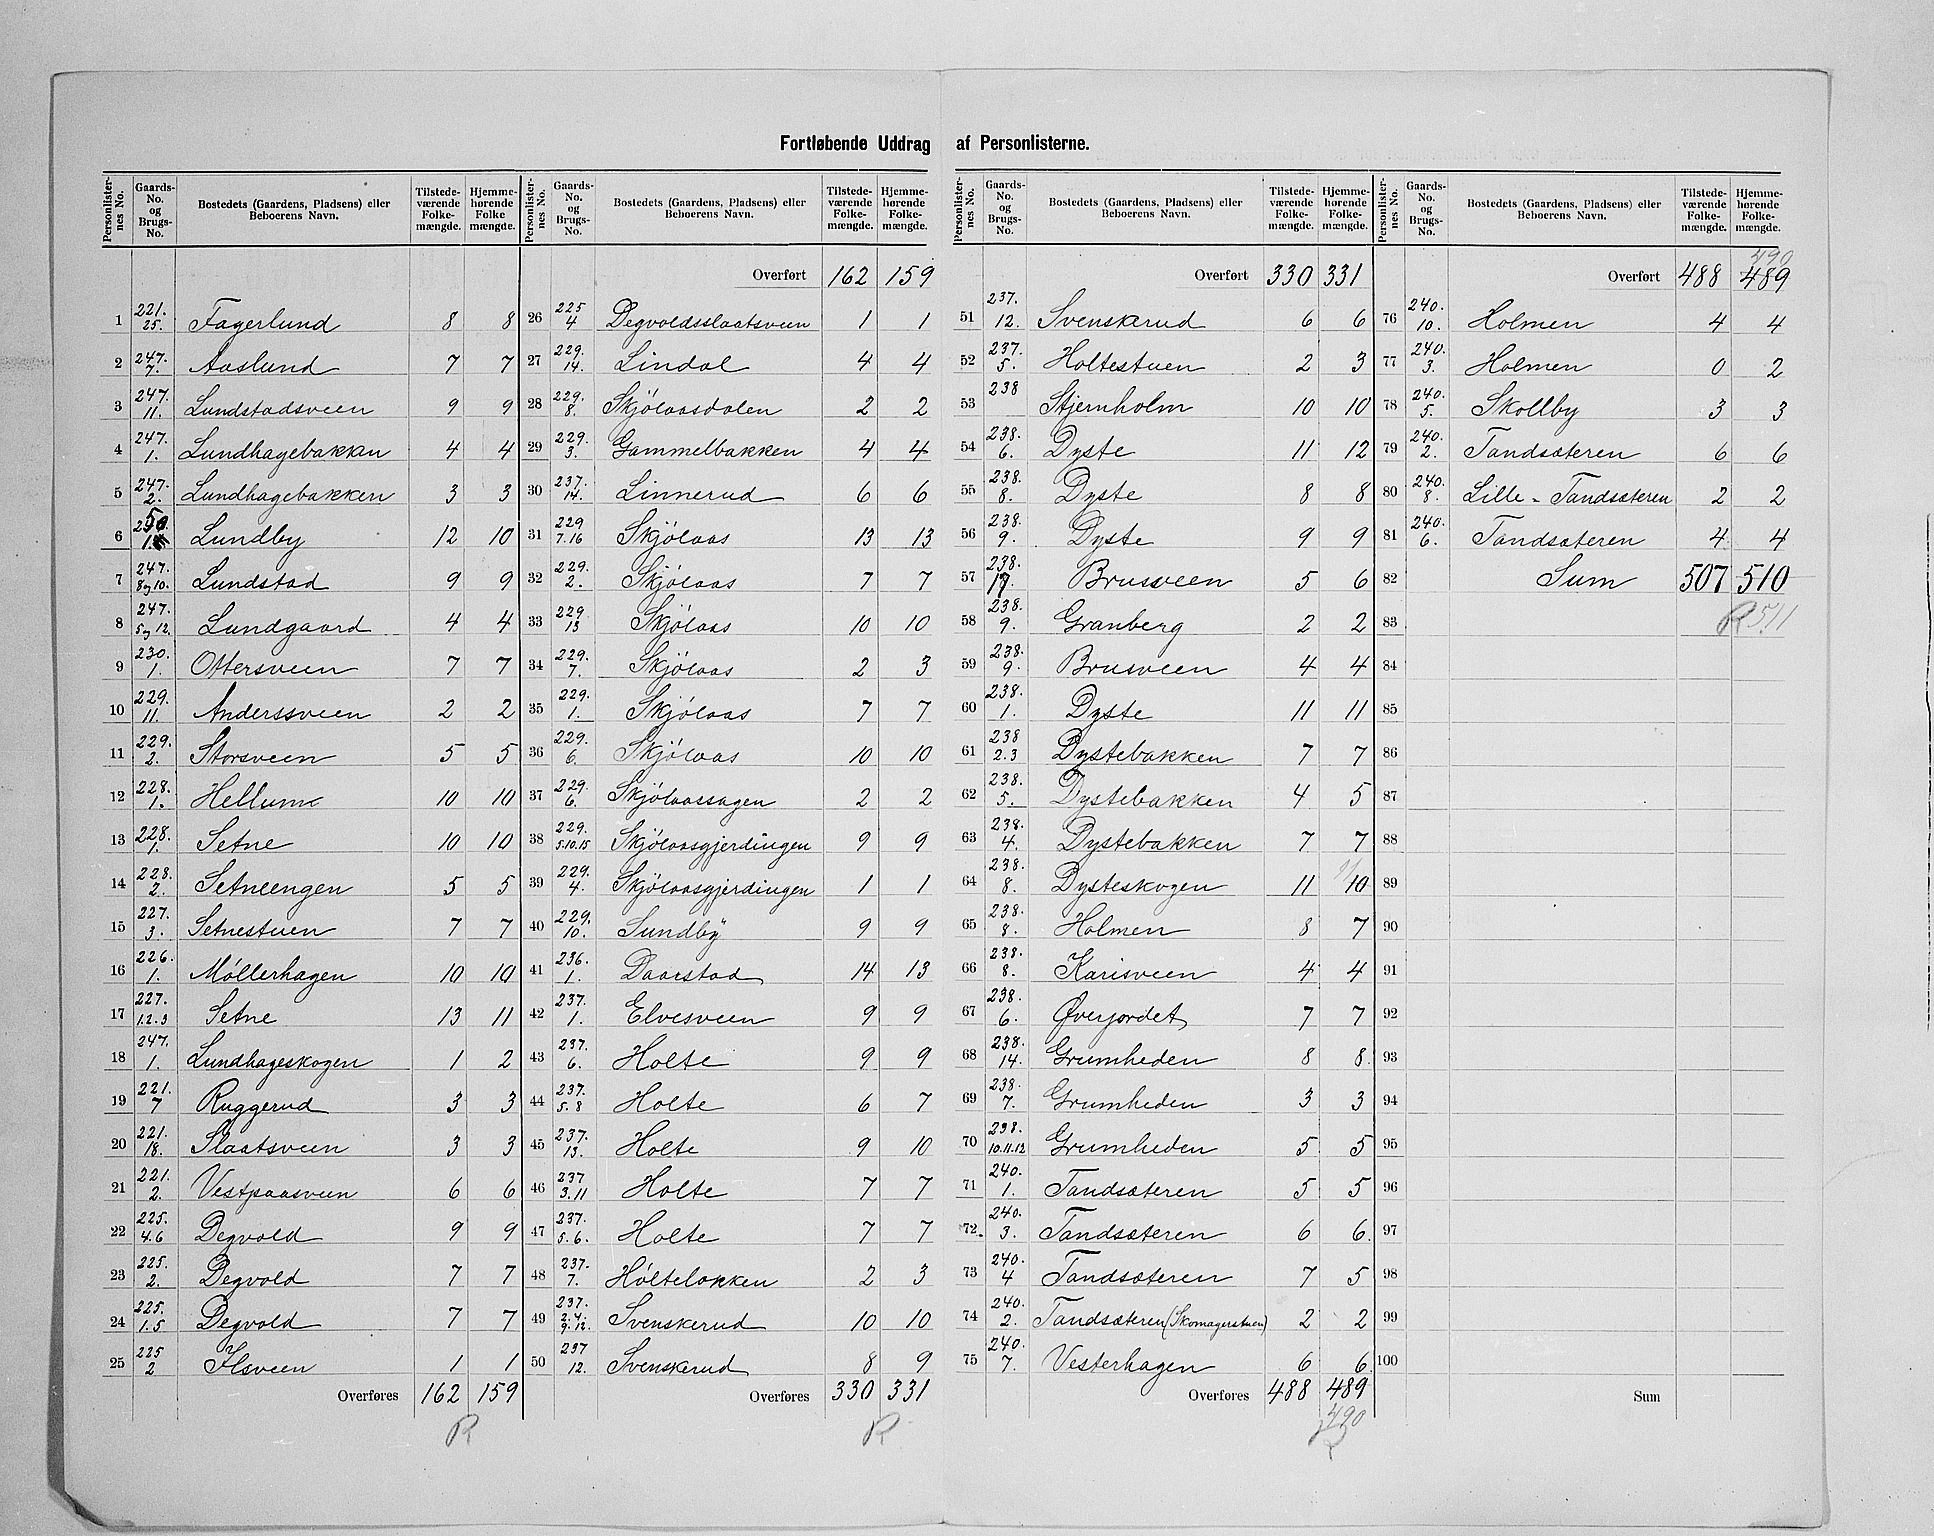 Fortløbende Uddrag af Personlisterne.
Personlister-nes No. | Gaards-No. og Brugs-No. | Bostedets (Gaardens, Pladsens) eller Beboerens Navn. | Tilstede-værende Folke-mængde. | Hjemme-hørende Folke-mængde.
1 | 221. 25. | Fagerlund | 8 | 8
2 | 247. 7. | Aaslund | 7 | 7
3 | 247. 11. | Lundstadsveen | 9 | 9
4 | 247. 1. | Lundhagebakken | 4 | 4
5 | 247. 2. | Lundhagebakken | 3 | 3
6 | Lundby | 12 | 10
7 | 247. 8 og 10. | Lundstad | 9 | 9
8 | 247. 5 og 12. | Lundgaard | 4 | 4
9 | 230. 1. | Ottersveen | 7 | 7
10 | 229. 11. | Anderssveen | 2 | 2
11 | 229. 2. | Storsveen | 5 | 5
12 | 228. 1. | Hellum | 10 | 10
13 | 228. 1. | Setne | 10 | 10
14 | 228. 2. | Setneengen | 5 | 5
15 | 227. 3. | Setnestuen | 7 | 7
16 | 226. 1. | Møllerhagen | 10 | 10
17 | 227. 1.2.3 | Setne | 13 | 11
18 | 247. 1. | Lundhageskogen | 1 | 2
19 | 221. 7 | Ruggerud | 3 | 3
20 | 221. 18. | Slaatsveen | 3 | 3
21 | 221. 2. | Vestpaasveen | 6 | 6
22 | 225. 4.6 | Degvold | 9 | 9
23 | 225. 2. | Degvold | 7 | 7
24 | 225. 1.5 | Degvold | 7 | 7
25 | 225 2 | Ilsveen | 1 | 1
Overføres | 162 | 159
R
Personlister-nes No. | Gaards-No. og Brugs-No. | Bostedets (Gaardens, Pladsens) eller Beboerens Navn. | Tilstede-værende Folke-mængde. | Hjemme-hørende Folke-mængde.
Overført | 162 | 159
26 | 225 4 | Degvoldsslaatsveen | 1 | 1
27 | 229. 14. | Lindal | 4 | 4
28 | 229. 8. | Skjølaasdalen | 2 | 2
29 | 229. 3. | Gammelbakken | 4 | 4
30 | 237. 14. | Linnerud | 6 | 6
31 | 229 7.16 | Skjølaas | 13 | 13
32 | 229. 2. | Skjølaas | 7 | 7
33 | 229 13 | Skjølaas | 10 | 10
34 | 229. 7. | Skjølaas | 2 | 3
35 | 229. 1. | Skjølaas | 7 | 7
36 | 229. 6. | Skjølaas | 10 | 10
37 | 229. 6. | Skjølaassagen | 2 | 2
38 | 229. 5.10.15 | Skjølaasgjerdingen | 9 | 9
39 | 229. 4. | Skjølaasgjerdingen | 1 | 1
40 | 229. 10. | Sundby | 9 | 9
41 | 236. 1. | Daarstad | 14 | 13
42 | 237. 1. | Elvesveen | 9 | 9
43 | 237. 6. | Holte | 9 | 9
44 | 237. 5.8 | Holte | 6 | 7
45 | 237. 13. | Holte | 9 | 10
46 | 237 3.11 | Holte | 7 | 7
47 | 237. 5.6. | Holte | 7 | 7
48 | 237. 7. | Holteløkken | 2 | 3
49 | 237. 2.4. 9.12. | Svenskerud | 10 | 10
50 | 237 12. | Svenskerud | 8 | 9
Overføres | 330 | 331
R
Personlister-nes No. | Gaards-No. og Brugs-No. | Bostedets (Gaardens, Pladsens) eller Beboerens Navn. | Tilstede-værende Folke-mængde. | Hjemme-hørende Folke-mængde.
Overført | 330 | 331
51 | 237. 12. | Svenskerud | 6 | 6
52 | 237. 5. | Holtestuen | 2 | 3
53 | 238 | Stjernholm | 10 | 10
54 | 238. 6. | Dyste | 11 | 12
55 | 238. 8. | Dyste | 8 | 8
56 | 238. 9. | Dyste | 9 | 9
57 | 238. 17. | Brusveen | 5 | 6
58 | 238. 9. | Granberg | 2 | 2
59 | 238. 9. | Brusveen | 4 | 4
60 | 238. 1. | Dyste | 11 | 11
61 | 238 2.3 | Dystebakken | 7 | 7
62 | 238. 5. | Dystebakken | 4 | 5
63 | 238. 4. | Dystebakken | 7 | 7
64 | 238. 8. | Dysteskogen | 11 | 11 10
65 | 238. 8. | Holmen | 8 | 7
66 | 238. 8. | Karisveen | 4 | 4
67 | 238. 6. | Øverjordet | 7 | 7
68 | 238. 14. | Grumheden | 8 | 8
69 | 238. 7. | Grumheden | 3 | 3
70 | 238. 10.11.12 | Grumheden | 5 | 5
71 | 240. 1. | Tandsæteren | 5 | 5
72. | 240. 3. | Tandsæteren | 6 | 6
73 | 240. 4 | Tandsæteren | 7 | 5
74 | 240. 2. | Tandsæteren (Skomagerstuen) | 2 | 2
75 | 240. 7. | Vesterhagen | 6 | 6
Overføres | 488 | 489
490
R
Personlister-nes No. | Gaards-No. og Brugs-No. | Bostedets (Gaardens, Pladsens) eller Beboerens Navn. | Tilstede-værende Folke-mængde. | Hjemme-hørende Folke-mængde.
490
Overført | 488 | 489
76 | 240. 10. | Holmen | 4 | 4
77 | 240. 3. | Holmen | 0 | 2
78 | 240. 5. | Skollby | 3 | 3
79 | 240. 2. | Tandsæteren | 6 | 6
80 | 240. 8. | Lille-Tandsæteren | 2 | 2
81 | 240. 6. | Tandsæteren | 4 | 4
82 | Sum | 507 | 510
83 | R 511
84
85
86
87
88
89
90
91
92
93
94
95
96
97
98
99
100
Sum